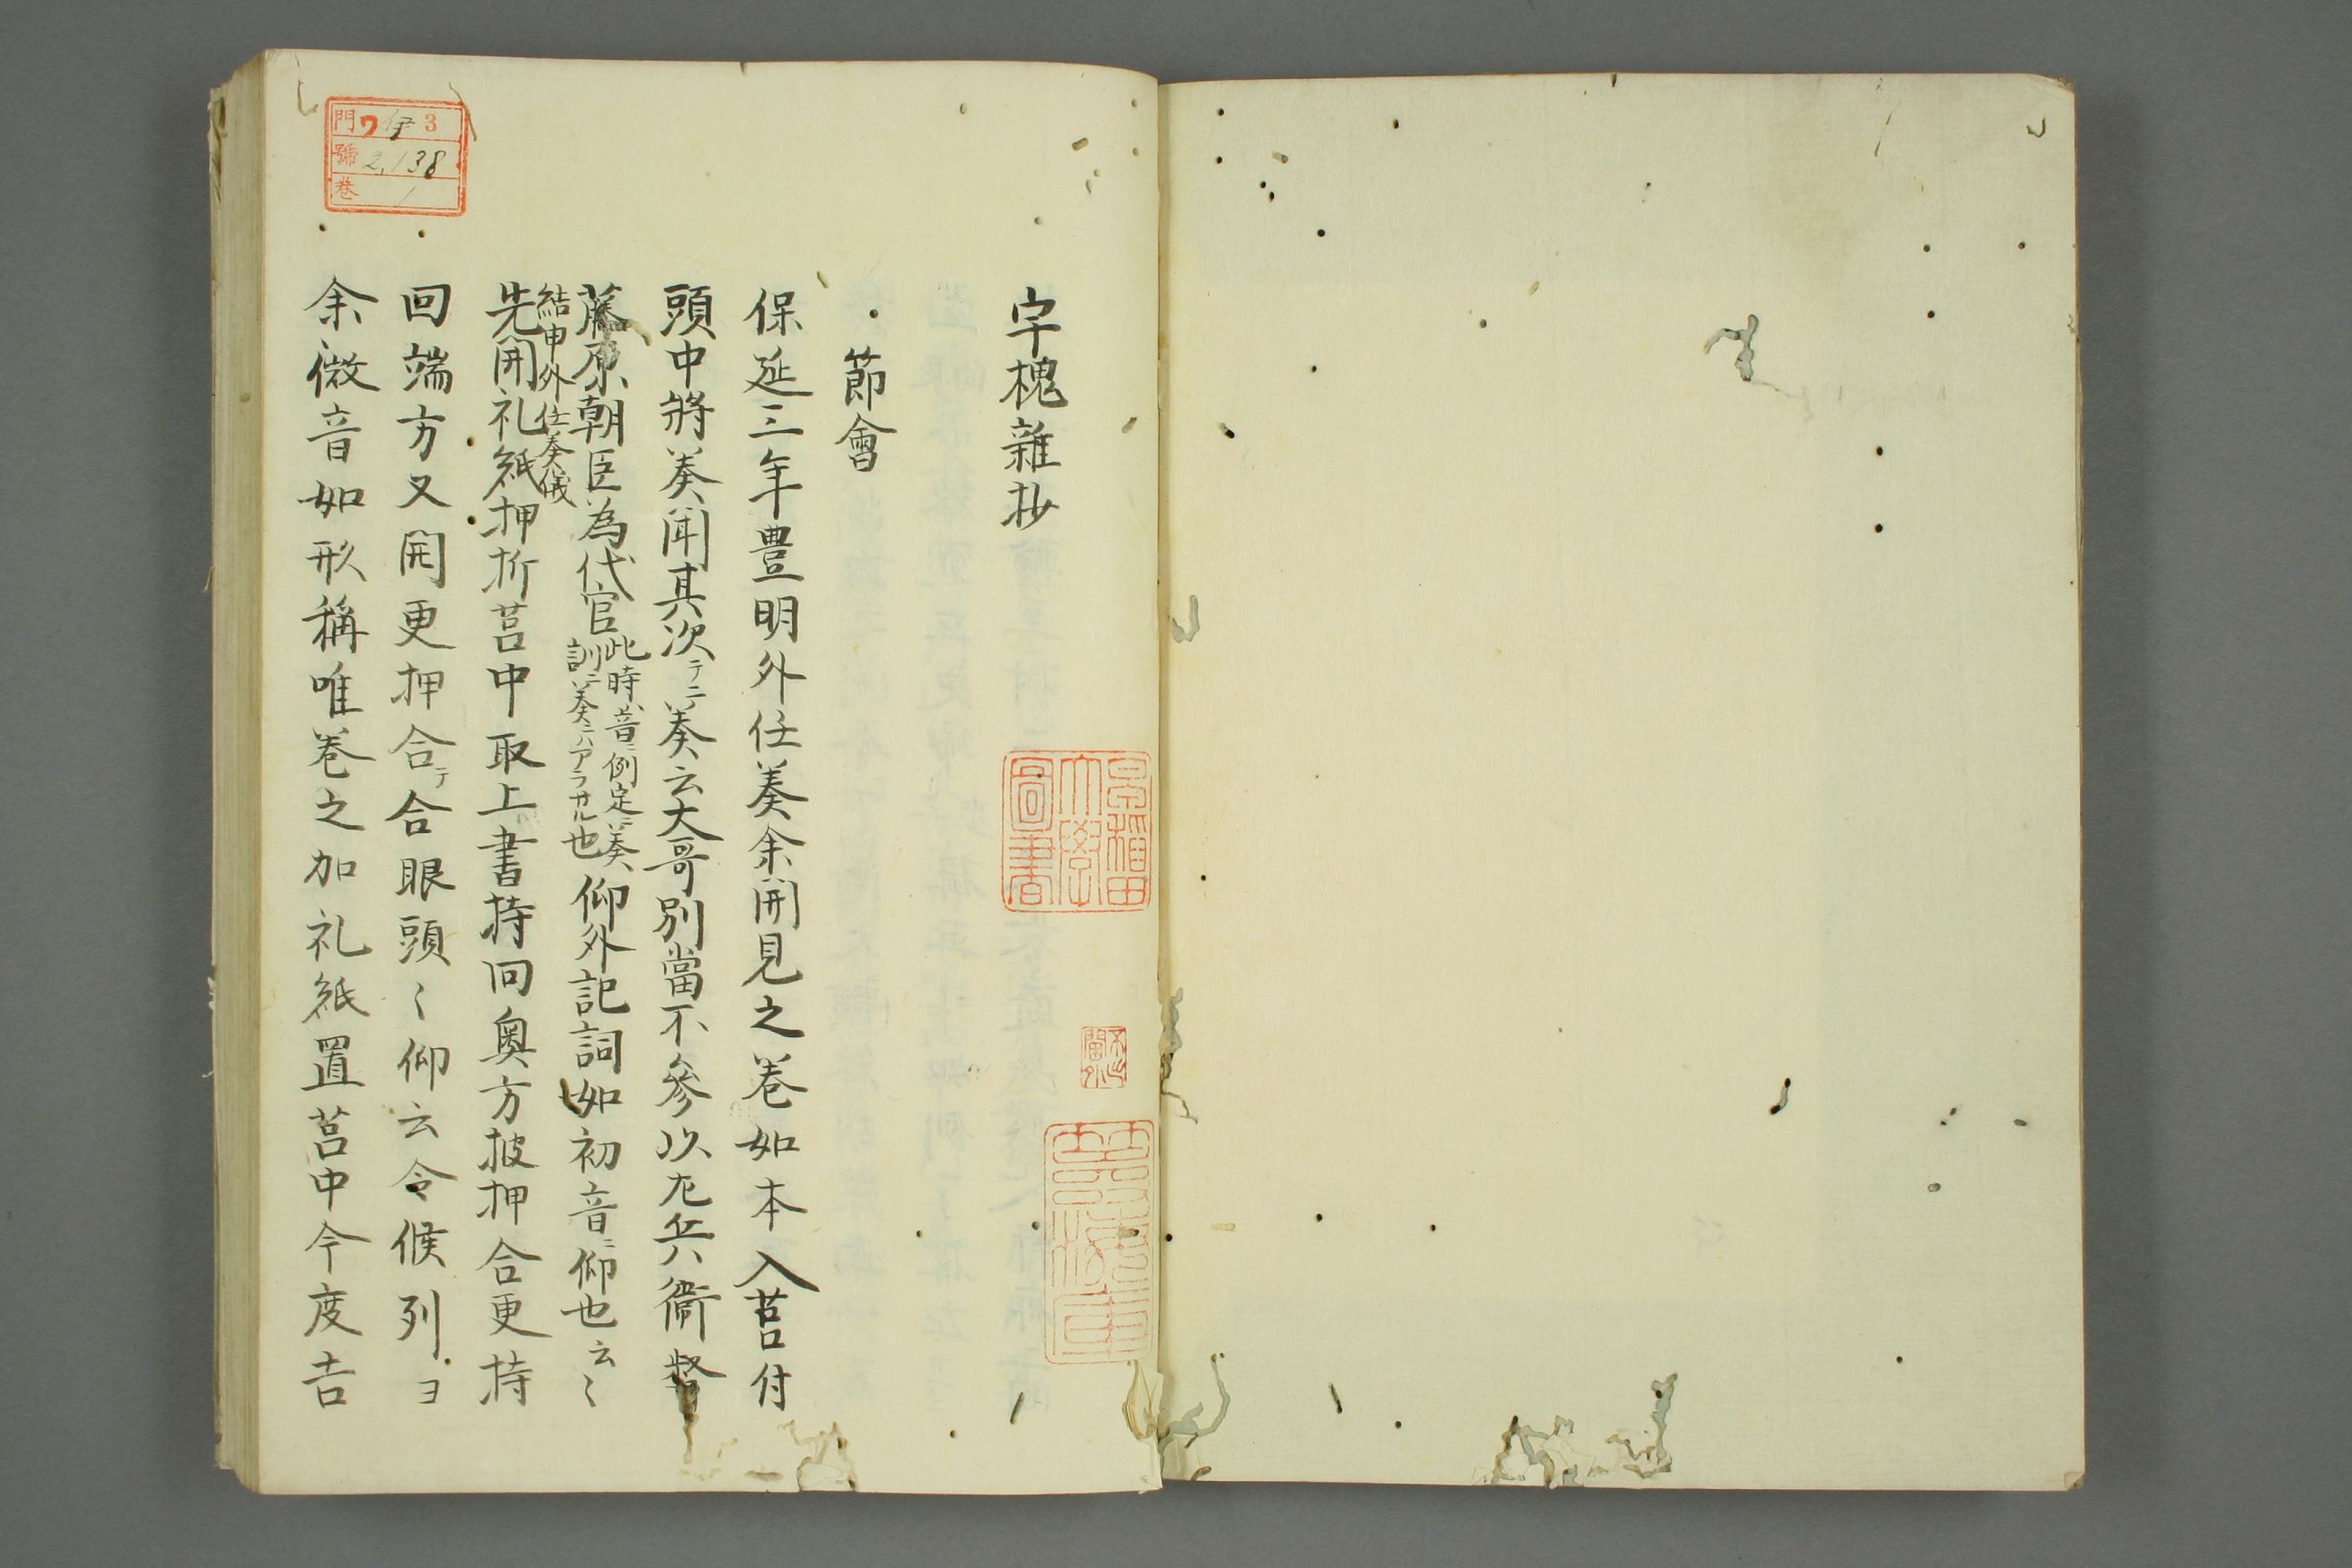 宇槐雜抄
節會
保延三年豊明外任奏余開見之卷如本入莒付
頭中將奏聞其次テニ奏云大哥別當不參以左兵衞督
藤原朝臣為代官
此時音ニ例定ニ奏
訓ニ奏ニハアラサル也
仰外記詞如初音ニ仰也云〻
結申外任奏儀
先開礼紙押折莒中取上書持向奥方披押合更持
回端方又開更押合テ合眼頭〻仰云令候列ヨ
余微音如形稱唯卷之加礼紙置莒中今度吉
門 ワ 伊 3
號 2,138
卷 1
早稲田大學圖書